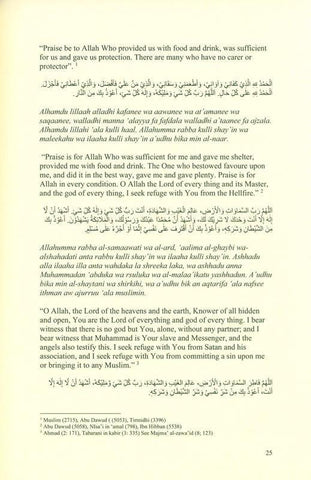 “Praise be to Allah Who provided us with food and drink, was sufficient
for us and gave us protection. There are many who have no carer or
protector”. 1
الْحَمْدُ للهِ الَّذِيْ كَفَانِيْ وَآوَانِيْ، وَأَطْعَمَنِيْ وَسَقَانِيْ، وَالَّذِيْ مَنَّ عَلَيَّ فَأَفْضَلَ، وَالَّذِيْ أَعْطَانِيْ فَأَجْزَلَ.
الْحَمْدُ للهِ عَلَى كُلِّ حَالٍ. اللَّهُمَّ رَبَّ كُلِّ شَيْءٍ وَمَلِيْكَهُ، وَإِلَهَ كُلِّ شَيْءٍ، أَعُوْذُ بِكَ مِنَ النَّارِ.
Alhamdu lillaah alladhi kafanee wa aawanee wa at'amanee wa
saqaanee, walladhi manna 'alayya fa fafdala walladhi a'taanee fa ajzala.
Alhamdu lillahi 'ala kulli haal. Allahumma rabba kulli shay'in wa
maleekahu wa ilaaha kulli shay'in a'udhu bika min al-naar.
“Praise is for Allah Who was sufficient for me and gave me shelter,
provided me with food and drink. The One who bestowed favour upon
me, and did it in the best way, gave me and gave plenty. Praise is for
Allah in every condition. O Allah the Lord of every thing and its Master,
and the god of every thing, I seek refuge with You from the Hellfire.” 2
اللَّهُمَّ رَبَّ السَّمَاوَاتِ وَالأَرْضِ، عَالِمَ الْغَيْبِ وَالشَّهَادَةِ، أَنْتَ رَبُّ كُلِّ شَيْءٍ وَإِلَهُ كُلِّ شَيْءٍ. أَشْهَدُ أَنْ لَا
إِلَهَ إِلَّا أَنْتَ وَحْدَكَ لَا شَرِيْكَ لَكَ، وَأَشْهَدُ أَنَّ مُحَمَّدًا عَبْدُكَ وَرَسُوْلُكَ، وَالْمَلَائِكَةُ يَشْهَدُوْنَ. أَعُوْذُ بِكَ
مِنَ الشَّيْطَانِ وَشِرْكِهِ، وَأَعُوْذُ بِكَ أَنْ أَقْتَرِفَ عَلَى نَفْسِيْ إِثْمًا أَوْ أَجُرَّهُ عَلَى مُسْلِمٍ.
Allahumma rabba al-samaawati wa al-ard, 'aalima al-ghaybi wa-
alshahadati anta rabbu kulli shay'in wa ilaaha kulli shay'in. Ashhadu
alla ilaaha illa anta wahduka la shreeka laka, wa ashhadu anna
Muhammadan 'abduka wa rsuluka wa al-malaikatu yashhadun. A'udhu
bika min al-shaytani wa shirkihi, wa a'udhu bik an aqtarifa 'ala nafsee
ithman aw ajurruu 'ala muslimin.
“O Allah, the Lord of the heavens and the earth, Knower of all hidden
and open, You are the Lord of everything and god of every thing. I bear
witness that there is no god but You, alone, without any partner; and I
bear witness that Muhammad is Your slave and Messenger, and the
angels also testify this. I seek refuge with You from Satan and his
association, and I seek refuge with You from committing a sin upon me
or bringing it to a Muslim.” 3
اللَّهُمَّ فَاطِرَ السَّمَاوَاتِ وَالأَرْضِ، عَالِمَ الْغَيْبِ وَالشَّهَادَةِ، رَبَّ كُلِّ شَيْءٍ وَمَلِيْكَهُ، أَشْهَدُ أَنْ لَا إِلَهَ إِلَّا
أَنْتَ، أَعُوْذُ بِكَ مِنْ شَرِّ نَفْسِيْ وَشَرِّ الشَّيْطَانِ وَشِرْكِهِ.
1 Muslim (2715), Abu Dawud ( (5053), Tirmidhi (3396)
2 Abu Dawud (5058), Nisa'i in 'amal (798), Ibn Hibban (5538)
3 Ahmad (2: 171), Tabarani in kabir (3: 335) See Majma' al-zawa'id (8; 123)
25